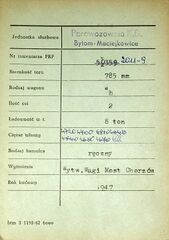 Jednostka służbowa
Parowozownia K.D.
Bytom-Maciejkowice
Nr inwentarza PKP
2011-9
Szerokość toru
785 mm
Rodzaj wagonu
h
Ilość osi
2
Ładowność w t.
8 ton
Ciężar własny
Rodzaj hamulca
ręczny
Wytwórnia
Wytw. Wagi Most Chorzów
Rok budowy
1947